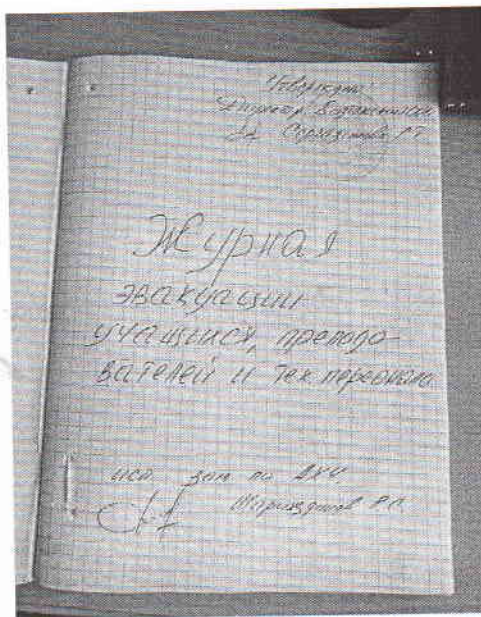 Утверждаю
Директор
Журнал
эвакуации
учащихся, преподо-
вателей и тех. персонала
исп. зам по АХЧ.